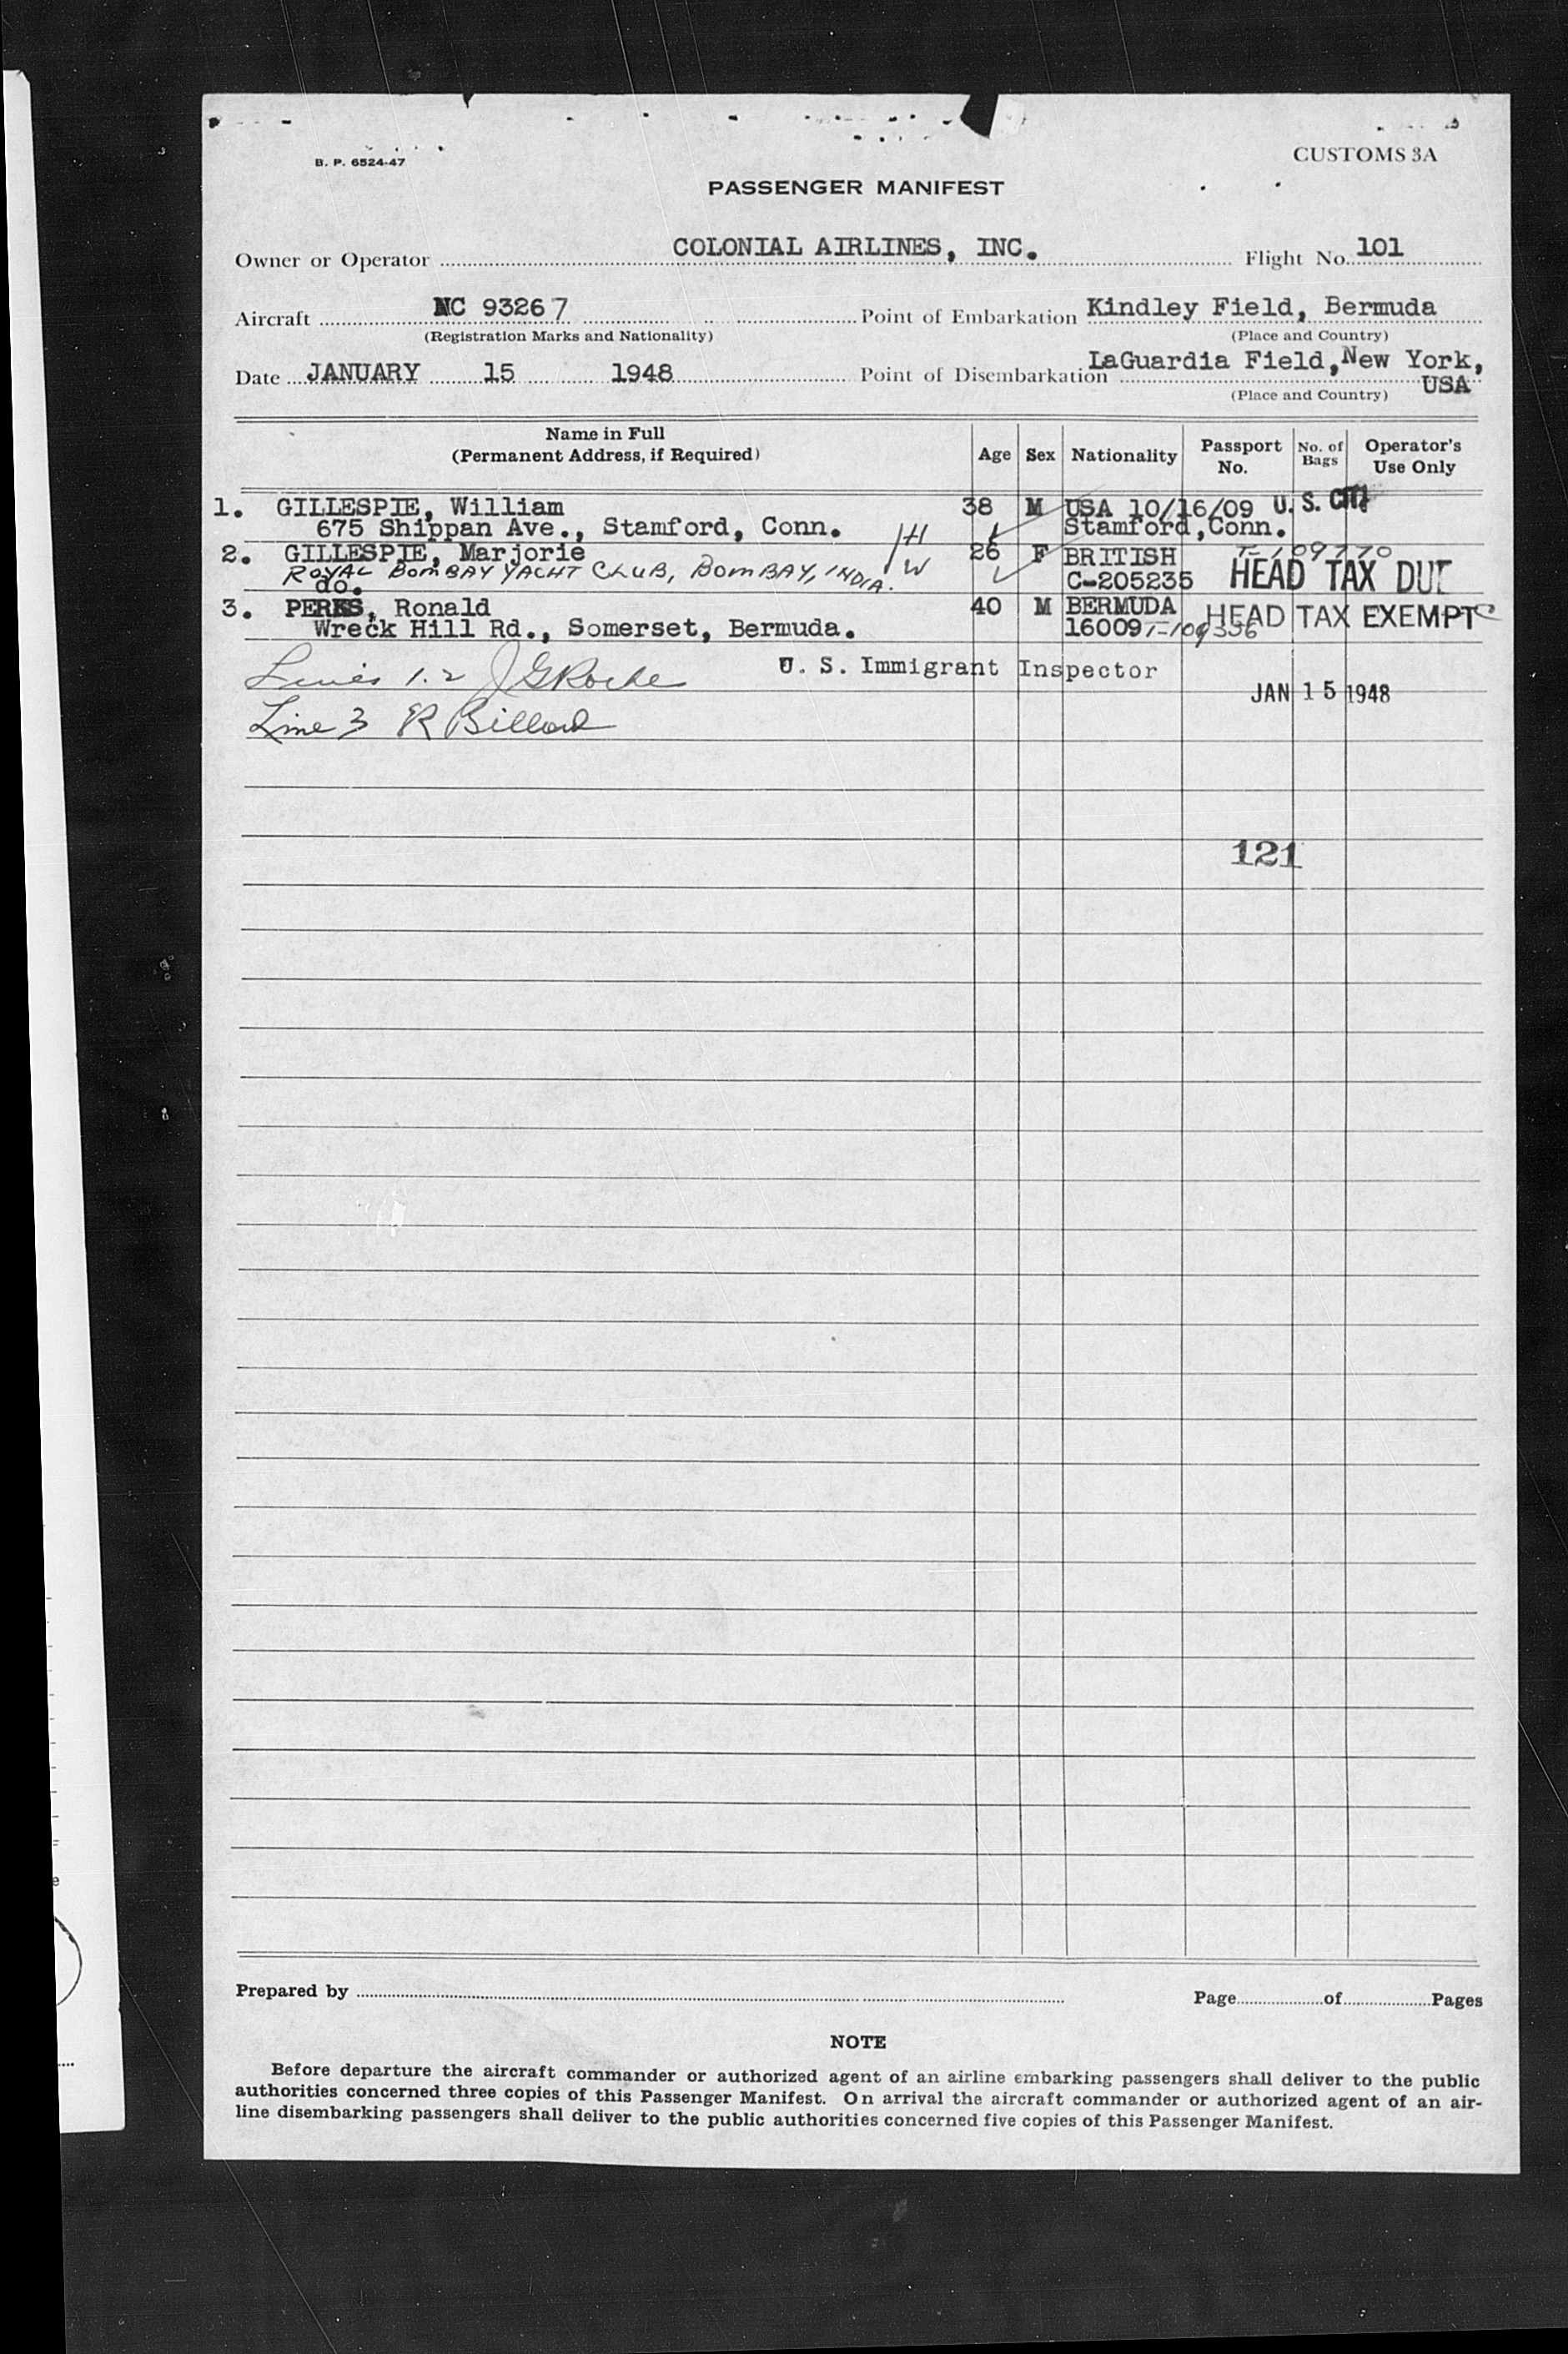 B. P. 6524-47
CUSTOMS 3A
PASSENGER MANIFEST
Owner or Operator COLONIAL AIRLINES, INC. Flight No. 101
Aircraft NC 93267 Point of Embarkation Kindley Field, Bermuda
(Registration Marks and Nationality) (Place and Country)
Date JANUARY 15 1948 Point of Disembarkation LaGuardia Field, New York,
USA
(Place and Country)
Name in Full Age Sex Nationality Passport No. No. of Bags Operator's Use Only
(Permanent Address, if Required)
1. GILLESPIE, William 38 M USA 10/16/09 U. S. CIT
675 Shippan Ave., Stamford, Conn. H Stamford, Conn.
2. GILLESPIE, Marjorie 26 F BRITISH T-109770
ROYAL BOMBAY YACHT CLUB, BOMBAY, INDIA. W C-205235 HEAD TAX DUE
do.
3. PERKS, Ronald 40 M BERMUDA HEAD TAX EXEMPT
Wreck Hill Rd., Somerset, Bermuda. 16009 T-109356
Lines 1.2 J G Roche U. S. Immigrant Inspector
JAN 15 1948
Line 3 R Billard
121
Prepared by Page of Pages
NOTE
Before departure the aircraft commander or authorized agent of an airline embarking passengers shall deliver to the public
authorities concerned three copies of this Passenger Manifest. On arrival the aircraft commander or authorized agent of an air-
line disembarking passengers shall deliver to the public authorities concerned five copies of this Passenger Manifest.